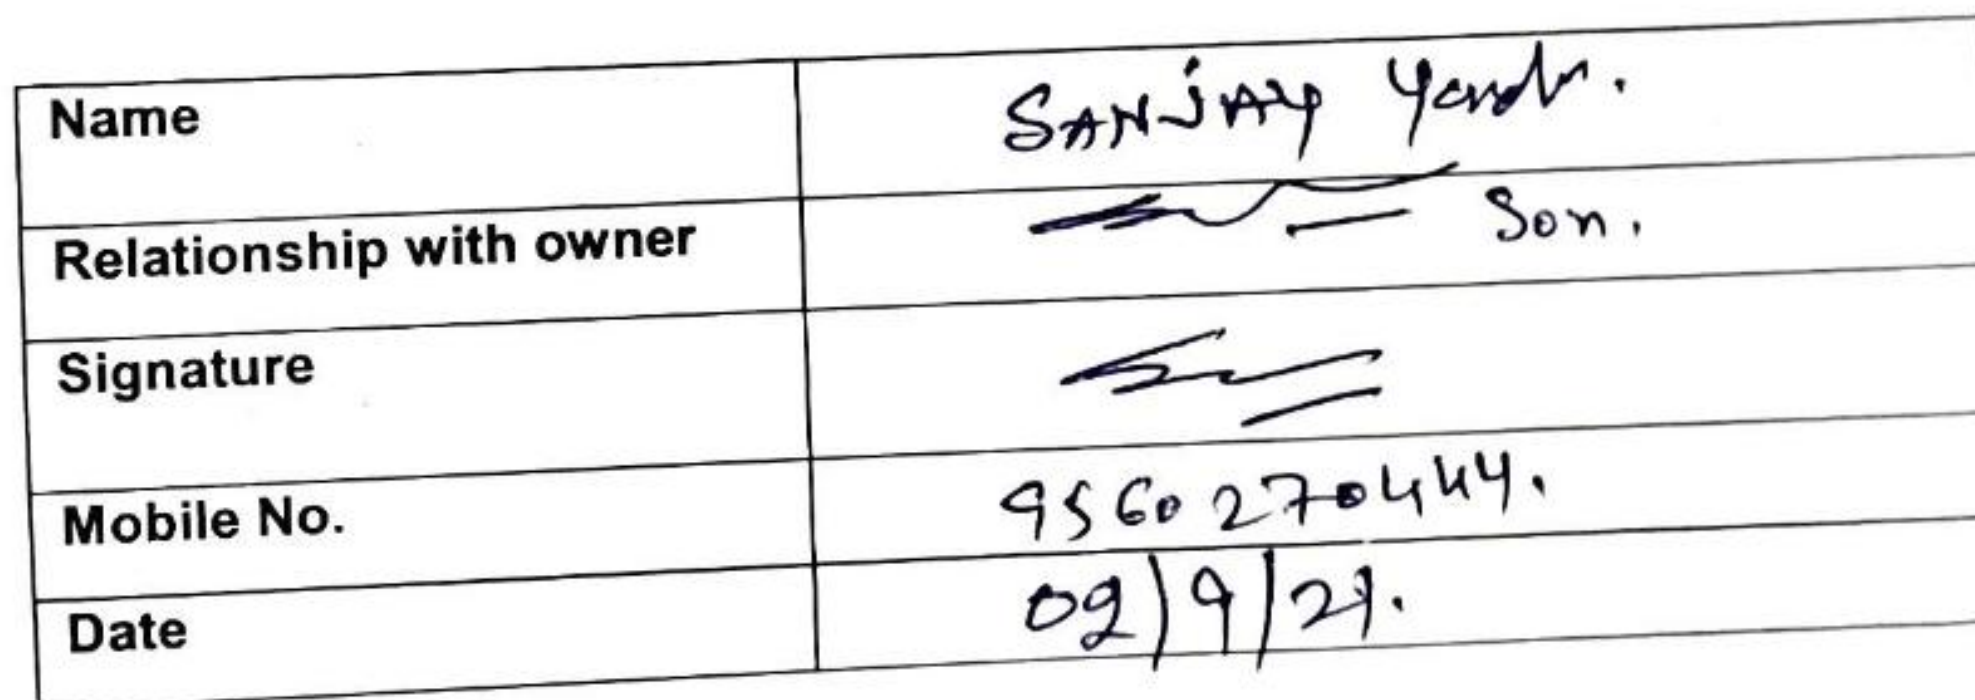 Name SANJAY
Relationship with owner Son.
Signature
Mobile No. 9560270444.
Date /9/21.